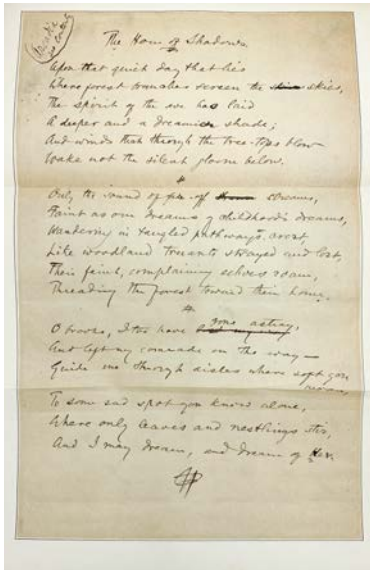 The Hour of Shadows.
Upon that quiet day that lies
Where forest branches screen the skies,
The spirit of the eve has laid
A deeper and a dreamier shade;
And winds that through the tree-tops blow
Wake not the silent gloom below.
Only the sound of far-off streams,
Faint as our dreams of childhood's dreams,
Wandering in tangled pathways crost,
Like woodland truants strayed and lost,
Their faint, complaining echoes roam,
Threading the forest toward their home.
O brooks, I too have gone astray,
And left my comrade on the way—
Guide me through aisles where soft you
moan,
To some sad spot you know alone,
Where only leaves and nestlings stir,
And I may dream, and dream of her.